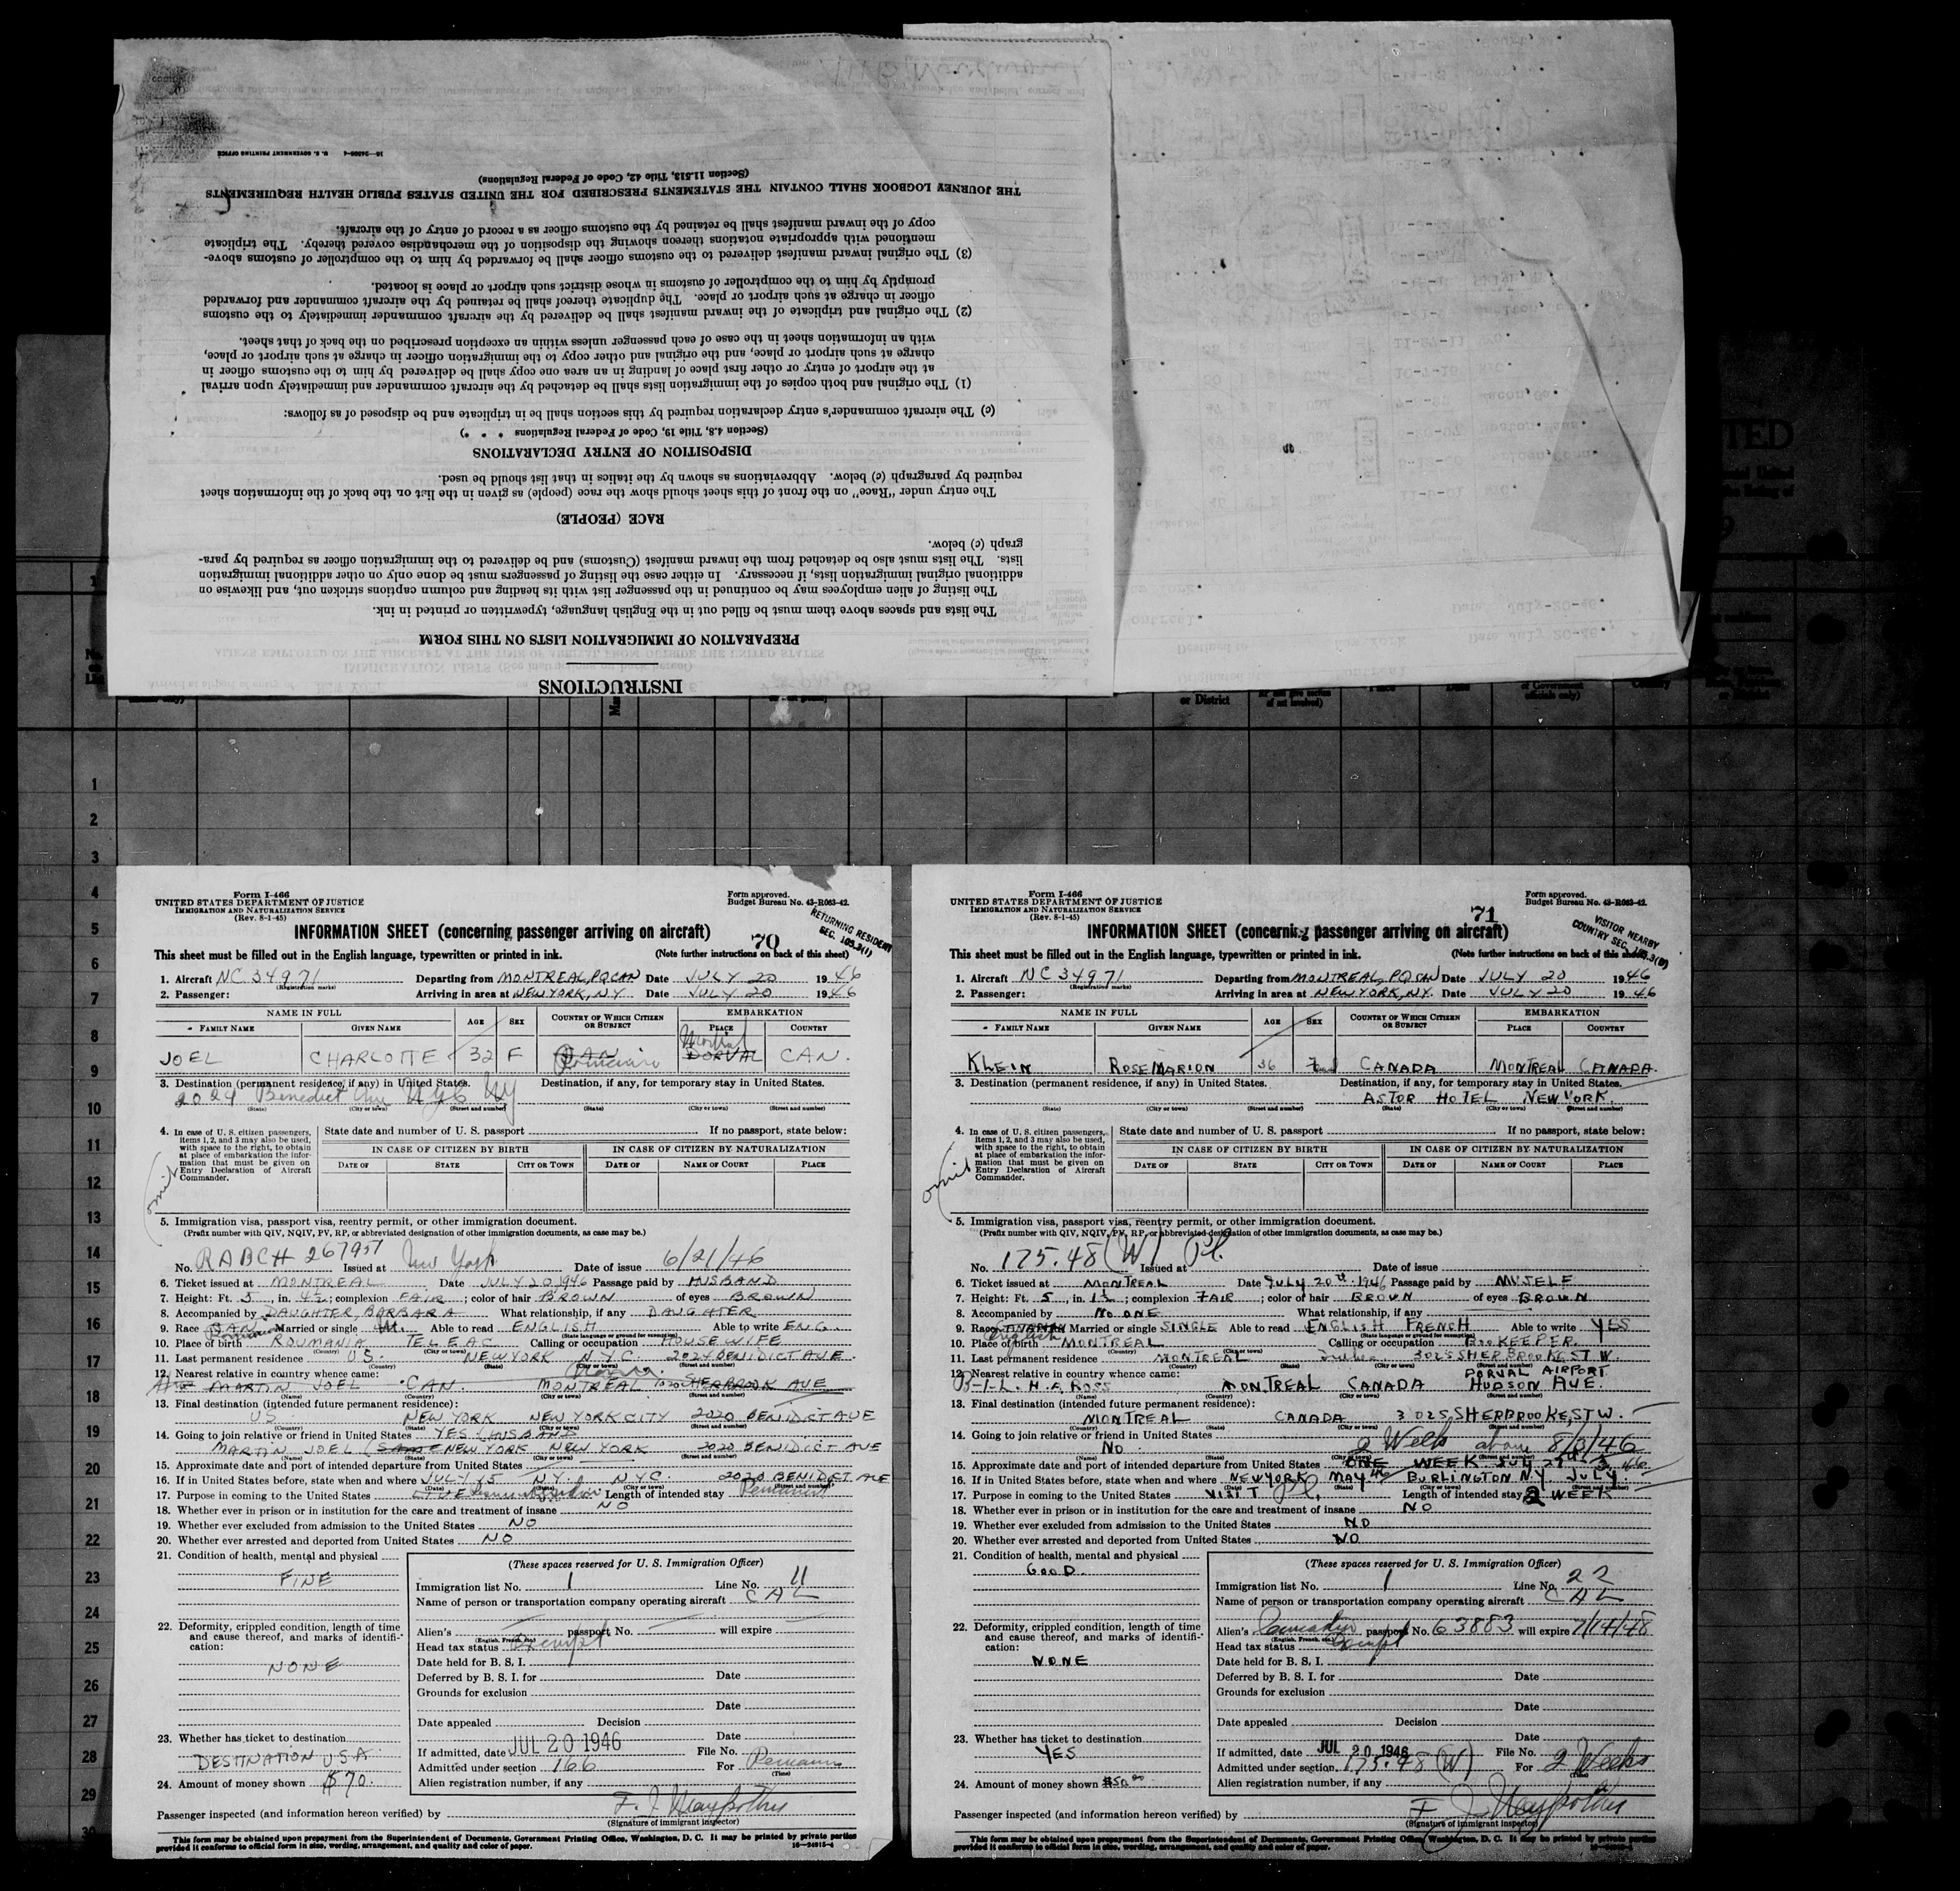 INSTRUCTIONS
PREPARATION OF IMMIGRATION LISTS ON THIS FORM
The lists and spaces above them must be filled out in the English language, typewritten or printed in ink.
The listing of alien employees may be continued in the passenger list with its heading and column captions stricken out, and likewise on
additional original immigration lists, if necessary. In either case the listing of passengers must be done only on other additional immigration
lists. The lists must also be detached from the inward manifest (Customs) and be delivered to the immigration officer as required by para-
graph (c) below.
RACE (PEOPLE)
The entry under "Race" on the front of this sheet should show the race (people) as given in the list on the back of the information sheet
required by paragraph (c) below. Abbreviations as shown by the italics in that list should be used.
DISPOSITION OF ENTRY DECLARATIONS
(Section 4.8, Title 19, Code of Federal Regulations * * *)
(c) The aircraft commander's entry declaration required by this section shall be in triplicate and be disposed of as follows:
(1) The original and both copies of the immigration lists shall be detached by the aircraft commander and immediately upon arrival
at the airport of entry or other first place of landing in an area one copy shall be delivered by him to the customs officer in
charge at such airport or place, and the original and other copy to the immigration officer in charge at such airport or place,
with an information sheet in the case of each passenger unless within an exception prescribed on the back of that sheet.
(2) The original and triplicate of the inward manifest shall be delivered by the aircraft commander immediately to the customs
officer in charge at such airport or place. The duplicate thereof shall be retained by the aircraft commander and forwarded
promptly by him to the comptroller of customs in whose district such airport or place is located.
(3) The original inward manifest delivered to the customs officer shall be forwarded by him to the comptroller of customs above-
mentioned with appropriate notations thereon showing the disposition of the merchandise covered thereby. The triplicate
copy of the inward manifest shall be retained by the customs officer as a record of entry of the aircraft.
THE JOURNEY LOGBOOK SHALL CONTAIN THE STATEMENTS PRESCRIBED FOR THE UNITED STATES PUBLIC HEALTH REQUIREMENTS
(Section 11.513, Title 42, Code of Federal Regulations)
U. S. GOVERNMENT PRINTING OFFICE
Form I-466
UNITED STATES DEPARTMENT OF JUSTICE
IMMIGRATION AND NATURALIZATION SERVICE
(Rev. 8-1-45)
Form approved.
Budget Bureau No. 43-R063-42.
RETURNING RESIDENT
INFORMATION SHEET (concerning passenger arriving on aircraft)
70
This sheet must be filled out in the English language, typewritten or printed in ink. (Note further instructions on back of this sheet)
1. Aircraft NC 34971 Departing from MONTREAL, PQ CAN Date JULY 20 1946
(Registration marks)
2. Passenger: Arriving in area at NEW YORK, NY Date JULY 20 1946
NAME IN FULL AGE SEX COUNTRY OF WHICH CITIZEN OR SUBJECT EMBARKATION
FAMILY NAME GIVEN NAME PLACE COUNTRY
JOEL CHARLOTTE 32 F DORVAL CAN.
3. Destination (permanent residence, if any) in United States. Destination, if any, for temporary stay in United States.
2024 Benedict Ave NYC NY
(State) (City or town) (Street and number) (State) (City or town) (Street and number)
4. In case of U. S. citizen passengers, items 1, 2, and 3 may also be used, with space to the right, to obtain at place of embarkation the information that must be given on Entry Declaration of Aircraft Commander.
omit
State date and number of U. S. passport If no passport, state below:
IN CASE OF CITIZEN BY BIRTH IN CASE OF CITIZEN BY NATURALIZATION
DATE OF STATE CITY OR TOWN DATE OF NAME OF COURT PLACE
5. Immigration visa, passport visa, reentry permit, or other immigration document.
(Prefix number with QIV, NQIV, PV, RP, or abbreviated designation of other immigration documents, as case may be.)
No. RABCH 267951 Issued at New York Date of issue 6/21/46
6. Ticket issued at MONTREAL Date JULY 20 1946 Passage paid by HUSBAND
7. Height: Ft. 5, in. 4½; complexion FAIR; color of hair BROWN of eyes BROWN
8. Accompanied by DAUGHTER, BARBARA What relationship, if any DAUGHTER
9. Race CAN Married or single M. Able to read ENGLISH Able to write ENG.
10. Place of birth ROUMANIA TELEAC Calling or occupation HOUSEWIFE
11. Last permanent residence US. NEW YORK N.Y.C. 2024 BENIDICT AVE.
12. Nearest relative in country whence came:
MARTIN JOEL CAN. MONTREAL 1020 SHERBROOK AVE
13. Final destination (intended future permanent residence):
US NEW YORK NEW YORK CITY 2020 BENIDICT AVE
14. Going to join relative or friend in United States YES (HUSBAND
MARTIN JOEL (SAME NEW YORK NEW YORK 2020 BENIDICT AVE
15. Approximate date and port of intended departure from United States
16. If in United States before, state when and where JULY 15 N.Y. N.Y.C. 2020 BENIDICT AVE
17. Purpose in coming to the United States LIVE Length of intended stay Permanent
18. Whether ever in prison or in institution for the care and treatment of insane NO
19. Whether ever excluded from admission to the United States NO
20. Whether ever arrested and deported from United States NO
21. Condition of health, mental and physical
FINE
22. Deformity, crippled condition, length of time and cause thereof, and marks of identification:
NONE
23. Whether has ticket to destination
DESTINATION USA
24. Amount of money shown $70.
(These spaces reserved for U. S. Immigration Officer)
Immigration list No. 1 Line No. 11
Name of person or transportation company operating aircraft CAL
Alien's passport No. will expire
(English, French, etc.)
Head tax status Exempt
Date held for B. S. I.
Deferred by B. S. I. for Date
Grounds for exclusion
Date
Date appealed Decision
Date
If admitted, date JUL 20 1946 File No.
Admitted under section 166 For
(Time)
Alien registration number, if any
Passenger inspected (and information hereon verified) by
(Signature of immigrant inspector)
This form may be obtained upon prepayment from the Superintendent of Documents, Government Printing Office, Washington, D. C. It may be printed by private parties
provided it conforms to official form in size, wording, arrangement, and quality and color of paper. 16-24915-4
Form I-466
UNITED STATES DEPARTMENT OF JUSTICE
IMMIGRATION AND NATURALIZATION SERVICE
(Rev. 8-1-45)
Form approved.
Budget Bureau No. 43-R063-42.
VISITOR NEARBY
COUNTRY SEC.
71
INFORMATION SHEET (concerning passenger arriving on aircraft)
This sheet must be filled out in the English language, typewritten or printed in ink. (Note further instructions on back of this sheet)
1. Aircraft NC 34971 Departing from MONTREAL, PQ CAN Date JULY 20 1946
(Registration marks)
2. Passenger: Arriving in area at NEW YORK, NY. Date JULY 20 1946
NAME IN FULL AGE SEX COUNTRY OF WHICH CITIZEN OR SUBJECT EMBARKATION
FAMILY NAME GIVEN NAME PLACE COUNTRY
KLEIN ROSE MARION 36 CANADA MONTREAL CANADA.
3. Destination (permanent residence, if any) in United States. Destination, if any, for temporary stay in United States.
ASTOR HOTEL NEW YORK.
(State) (City or town) (Street and number) (State) (City or town) (Street and number)
4. In case of U. S. citizen passengers, items 1, 2, and 3 may also be used, with space to the right, to obtain at place of embarkation the information that must be given on Entry Declaration of Aircraft Commander.
omit
State date and number of U. S. passport If no passport, state below:
IN CASE OF CITIZEN BY BIRTH IN CASE OF CITIZEN BY NATURALIZATION
DATE OF STATE CITY OR TOWN DATE OF NAME OF COURT PLACE
5. Immigration visa, passport visa, reentry permit, or other immigration document.
(Prefix number with QIV, NQIV, PV, RP, or abbreviated designation of other immigration documents, as case may be.)
No. 175.48 (W) Pl. Issued at Date of issue
6. Ticket issued at MONTREAL Date July 20th 1946 Passage paid by MYSELF
7. Height: Ft. 5, in. 1½; complexion FAIR; color of hair BROWN of eyes BROWN
8. Accompanied by NO ONE What relationship, if any
9. Race English Married or single SINGLE Able to read ENGLISH FRENCH Able to write YES
10. Place of birth MONTREAL Calling or occupation BOOKEEPER.
11. Last permanent residence MONTREAL 3025 SHERBROOKE ST W.
12. Nearest relative in country whence came: DORVAL AIRPORT
B-I-L. H.F. ROSS MONTREAL CANADA HUDSON AVE.
13. Final destination (intended future permanent residence):
MONTREAL CANADA 3025, SHERBROOKE ST W.
14. Going to join relative or friend in United States
NO 2 Weeks 8/3/46
15. Approximate date and port of intended departure from United States ONE WEEK July 46
16. If in United States before, state when and where NEW YORK MAY BURLINGTON N.Y. JULY.
17. Purpose in coming to the United States VISIT Pl. Length of intended stay 2 WEEK
18. Whether ever in prison or in institution for the care and treatment of insane NO
19. Whether ever excluded from admission to the United States NO
20. Whether ever arrested and deported from United States NO
21. Condition of health, mental and physical
GOOD.
22. Deformity, crippled condition, length of time and cause thereof, and marks of identification:
NONE
23. Whether has ticket to destination
YES
24. Amount of money shown $50.00
(These spaces reserved for U. S. Immigration Officer)
Immigration list No. 1 Line No. 22
Name of person or transportation company operating aircraft CAL
Alien's Canadian passport No. 63883 will expire 7/14/48
(English, French, etc.)
Head tax status Exempt
Date held for B. S. I.
Deferred by B. S. I. for Date
Grounds for exclusion
Date
Date appealed Decision
Date
If admitted, date JUL 20 1946 File No.
Admitted under section 175.48 (W) For 2 Weeks
(Time)
Alien registration number, if any
Passenger inspected (and information hereon verified) by
(Signature of immigrant inspector)
This form may be obtained upon prepayment from the Superintendent of Documents, Government Printing Office, Washington, D. C. It may be printed by private parties
provided it conforms to official form in size, wording, arrangement, and quality and color of paper.